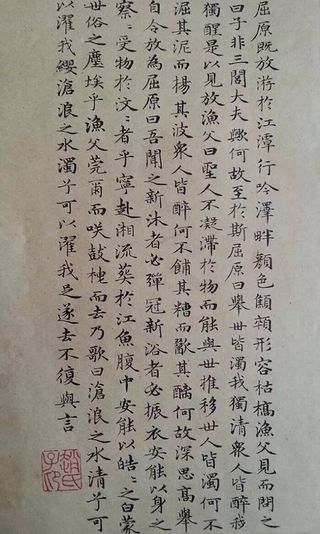 屈原既放游於江潭行吟澤畔顏色顦顇形容枯槁漁父見而問之
曰子非三閭大夫歟何故至於斯屈原曰舉世皆濁我獨清衆人皆醉我
獨醒是以見放漁父曰聖人不凝滯於物而能與世推移世人皆濁何不
淈其泥而揚其波衆人皆醉何不餔其糟而歠其醨何故深思高舉
自令放為屈原曰吾聞之新沐者必彈冠新浴者必振衣安能以身之
察〻受物於汶〻者乎寧赴湘流葬於江魚腹中安能以皓〻之白蒙
世俗之塵埃乎漁父莞爾而咲鼓枻而去乃歌曰滄浪之水清兮可
以濯我纓滄浪之水濁兮可以濯我足遂去不復與言
趙氏子昂